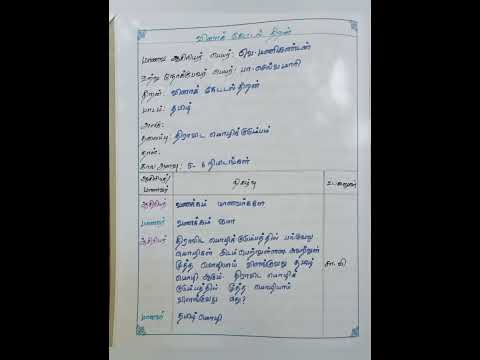 வினாக் கேட்டல் திறன்
மாணவ ஆசிரியர் பெயர்: வெ. மணிகண்டன்
உற்று நோக்குபவர் பெயர்: பா. செல்வ மாரி
திறன்: வினாக் கேட்டல் திறன்
பாடம்: தமிழ்
அலகு:
தலைப்பு: திராவிட மொழிக்குடும்பம்
நாள்:
கால அளவு: 5 - 6 நிமிடங்கள்
ஆசிரியர்/ மாணவர் நிகழ்வு உட்கூறுகள்
ஆசிரியர் வணக்கம் மாணவர்களே
மாணவர் வணக்கம் ஐயா
ஆசிரியர் திராவிட மொழிக்குடும்பத்தில் பல்வேறு
மொழிகள் இடம் பெற்றுள்ளன அவற்றுள்
மூத்த மொழியாய் விளங்குவது தமிழ்
மொழி ஆகும். திராவிட மொழிக்
குடும்பத்தில் மூத்த மொழியாய்
விளங்குவது எது?
மாணவர் தமிழ் மொழி